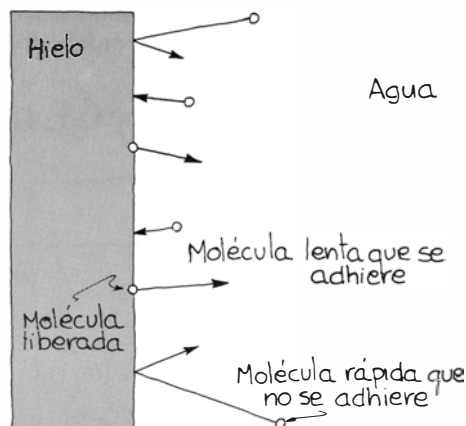 Hielo
Agua
Molécula lenta que se
adhiere
Molécula
liberada
Molécula rápida que
no se adhiere